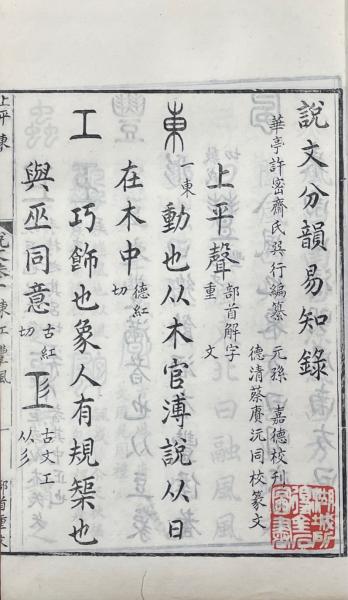 說文分韻易知錄
華亭許密齋氏巽行編纂 元孫 嘉德校刊
德清蔡賡沅同校篆文
上平聲 部首解字
重文
東 一東 動也从木官溥說从日
在木中 德紅切
工 巧飾也象人有規榘也
與巫同意 古紅切 古文工从彡
上平 東
東工豐風
一
部首重文